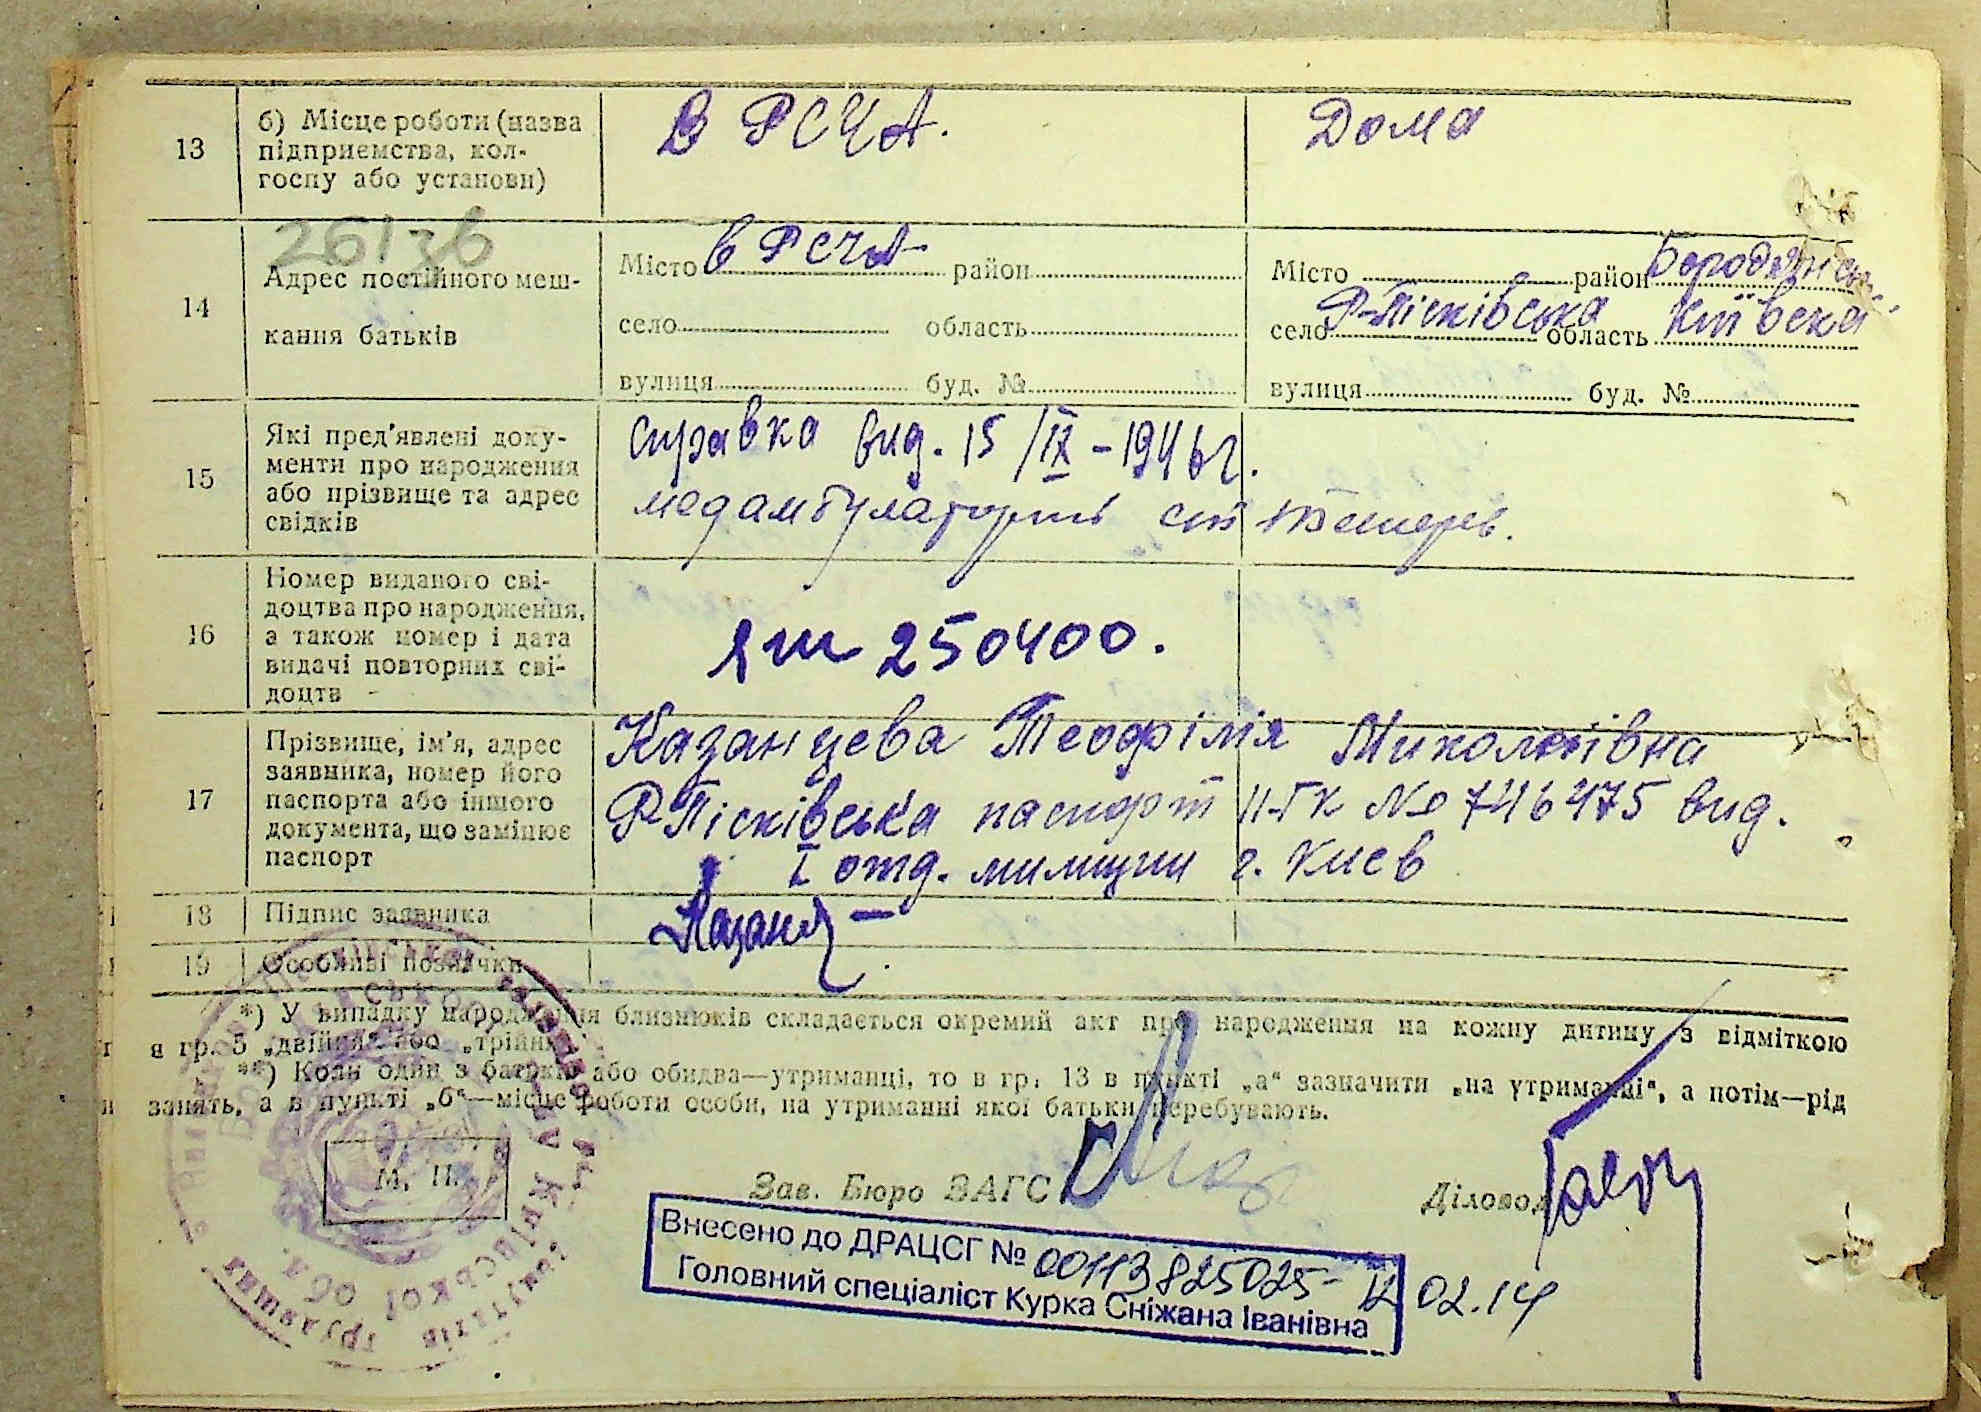 13
б) Місце роботи (назва
підприємства, кол-
госпу або установи)
В РСЧА.
Дома
26136
14
Адрес постійного меш-
кання батьків
Місто в РСЧА район
село область
вулиця буд. №
Місто район Бородянськ.
село Р-Пісківська область Київська
вулиця буд. №
15
Які пред'явлені доку-
менти про народження
або прізвище та адрес
свідків
справка вид. 15/IX-1946 г.
медамбулатории ст. Тетерев.
16
Номер виданого сві-
доцтва про народження,
а також номер і дата
видачі повторних сві-
доцтв -
250400.
17
Прізвище, ім'я, адрес
заявника, номер його
паспорта або іншого
документа, що замінює
паспорт
Казанцева Теофілія Миколаївна
Р-Пісківська паспорт № 746475 вид.
I отд. милиции г. Киев
18
Підпис заявника
19
Особливі позначки
*) У випадку народження близнюків складається окремий акт про народження на кожну дитину з відміткою
в гр. 5 „двійня“ або „трійня“.
**) Коли один з батьків або обидва—утриманці, то в гр. 13 в пункті „а“ зазначити „на утриманні“, а потім—рід
занять, а в пункті „б“—місце роботи особи, на утриманні якої батьки перебувають.
М. П.
Зав. Бюро ЗАГС
Діловод
Внесено до ДРАЦСГ № 00113825025-
Головний спеціаліст Курка Сніжана Іванівна
02.14